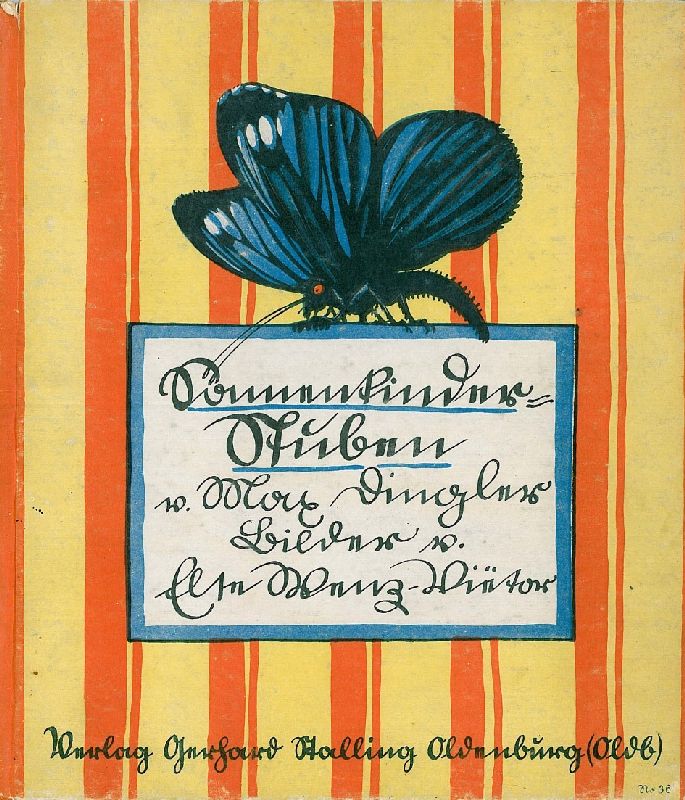 Sonnenkinder=
Stuben
v. Max Dingler
Bilder v.
Else Wenz-Viëtor
Verlag Gerhard Stalling Oldenburg (Oldb)